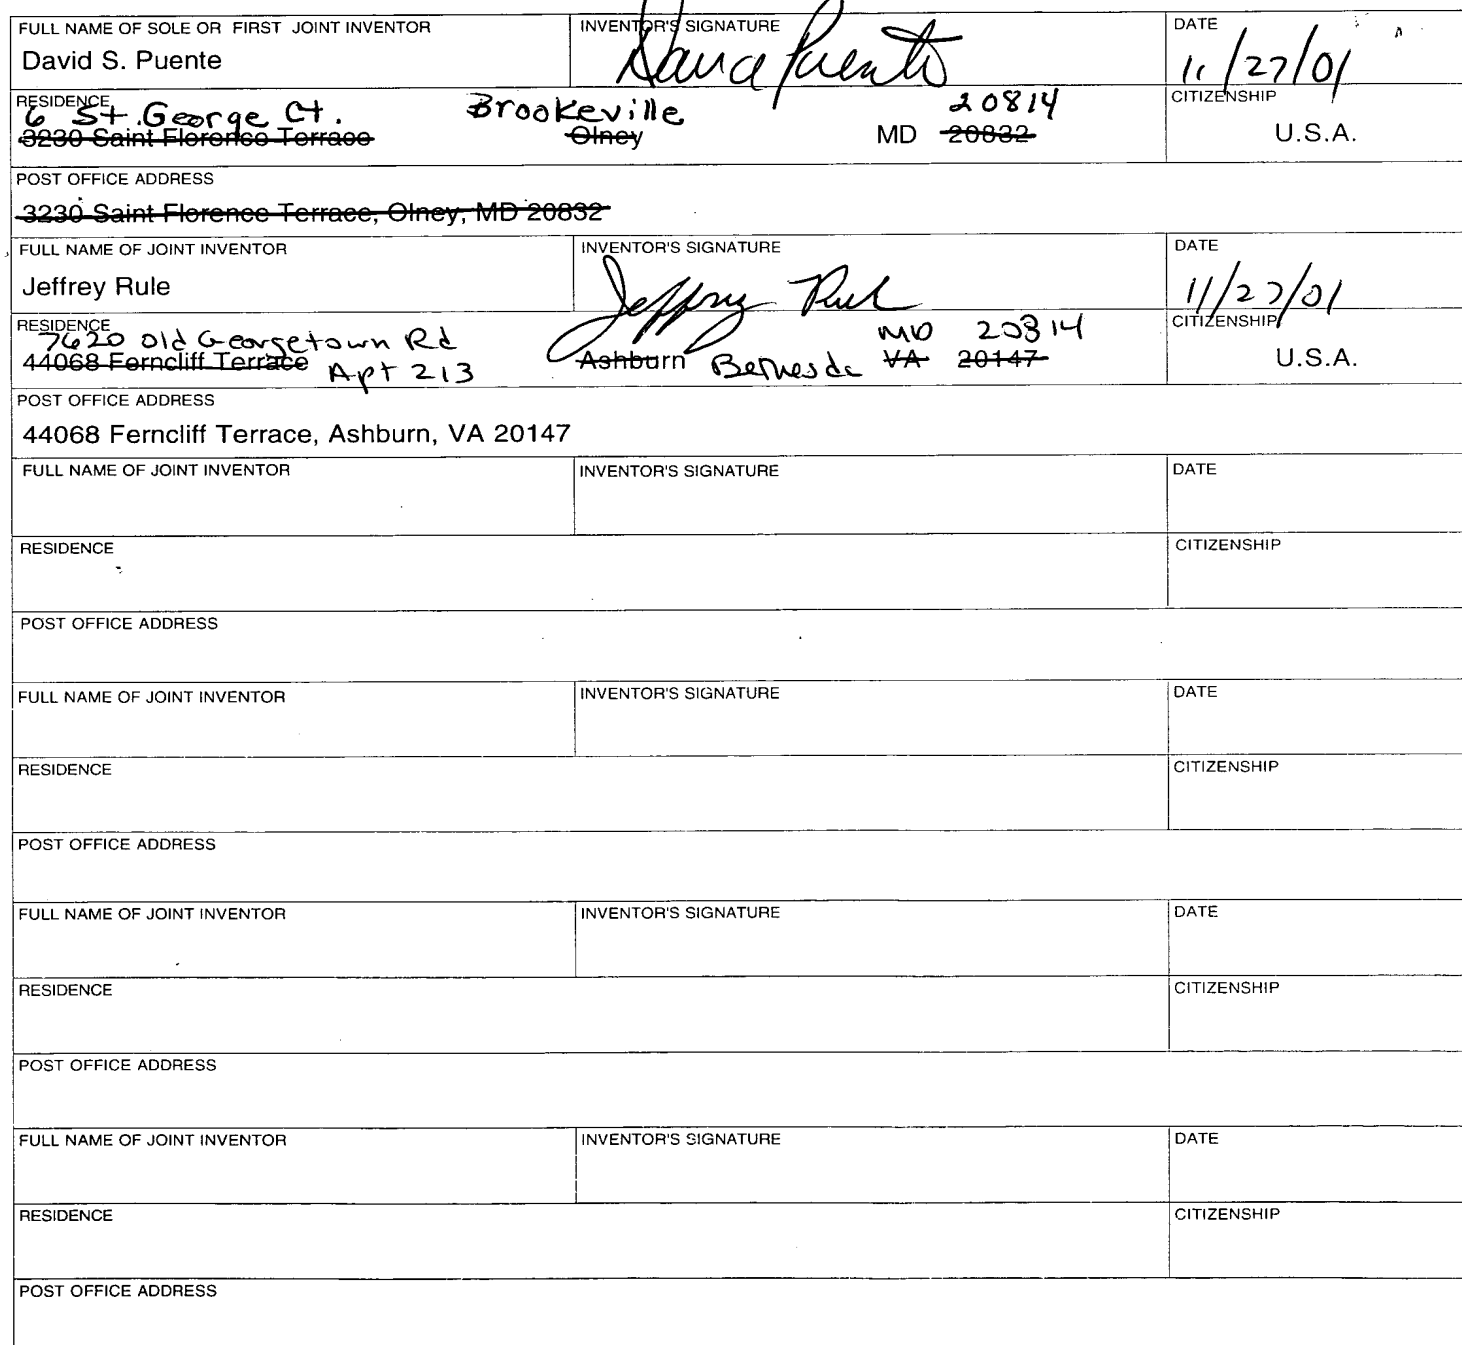 FULL NAME OF SOLE OR FIRST JOINT INVENTOR INVENTOR'S SIGNATURE DATE
David S. Puente David Puente 11/27/01
RESIDENCE CITIZENSHIP
6 St. George Ct. Brookeville 20814
3230 Saint Florence Terrace Olney MD 20832 U.S.A.
POST OFFICE ADDRESS
3230 Saint Florence Terrace, Olney, MD 20832
FULL NAME OF JOINT INVENTOR INVENTOR'S SIGNATURE DATE
Jeffrey Rule Jeffrey Rule 11/27/01
RESIDENCE CITIZENSHIP
7620 Old Georgetown Rd MD 20814
44068 Ferncliff Terrace Apt 213 Ashburn Bethesda VA 20147 U.S.A.
POST OFFICE ADDRESS
44068 Ferncliff Terrace, Ashburn, VA 20147
FULL NAME OF JOINT INVENTOR INVENTOR'S SIGNATURE DATE
RESIDENCE CITIZENSHIP
POST OFFICE ADDRESS
FULL NAME OF JOINT INVENTOR INVENTOR'S SIGNATURE DATE
RESIDENCE CITIZENSHIP
POST OFFICE ADDRESS
FULL NAME OF JOINT INVENTOR INVENTOR'S SIGNATURE DATE
RESIDENCE CITIZENSHIP
POST OFFICE ADDRESS
FULL NAME OF JOINT INVENTOR INVENTOR'S SIGNATURE DATE
RESIDENCE CITIZENSHIP
POST OFFICE ADDRESS